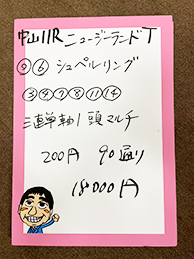 中山11R ニュージーランドT
◎⑥ シュペルリング
③④⑦⑧⑪⑭
三連単軸1頭マルチ
200円 90通り
18000円